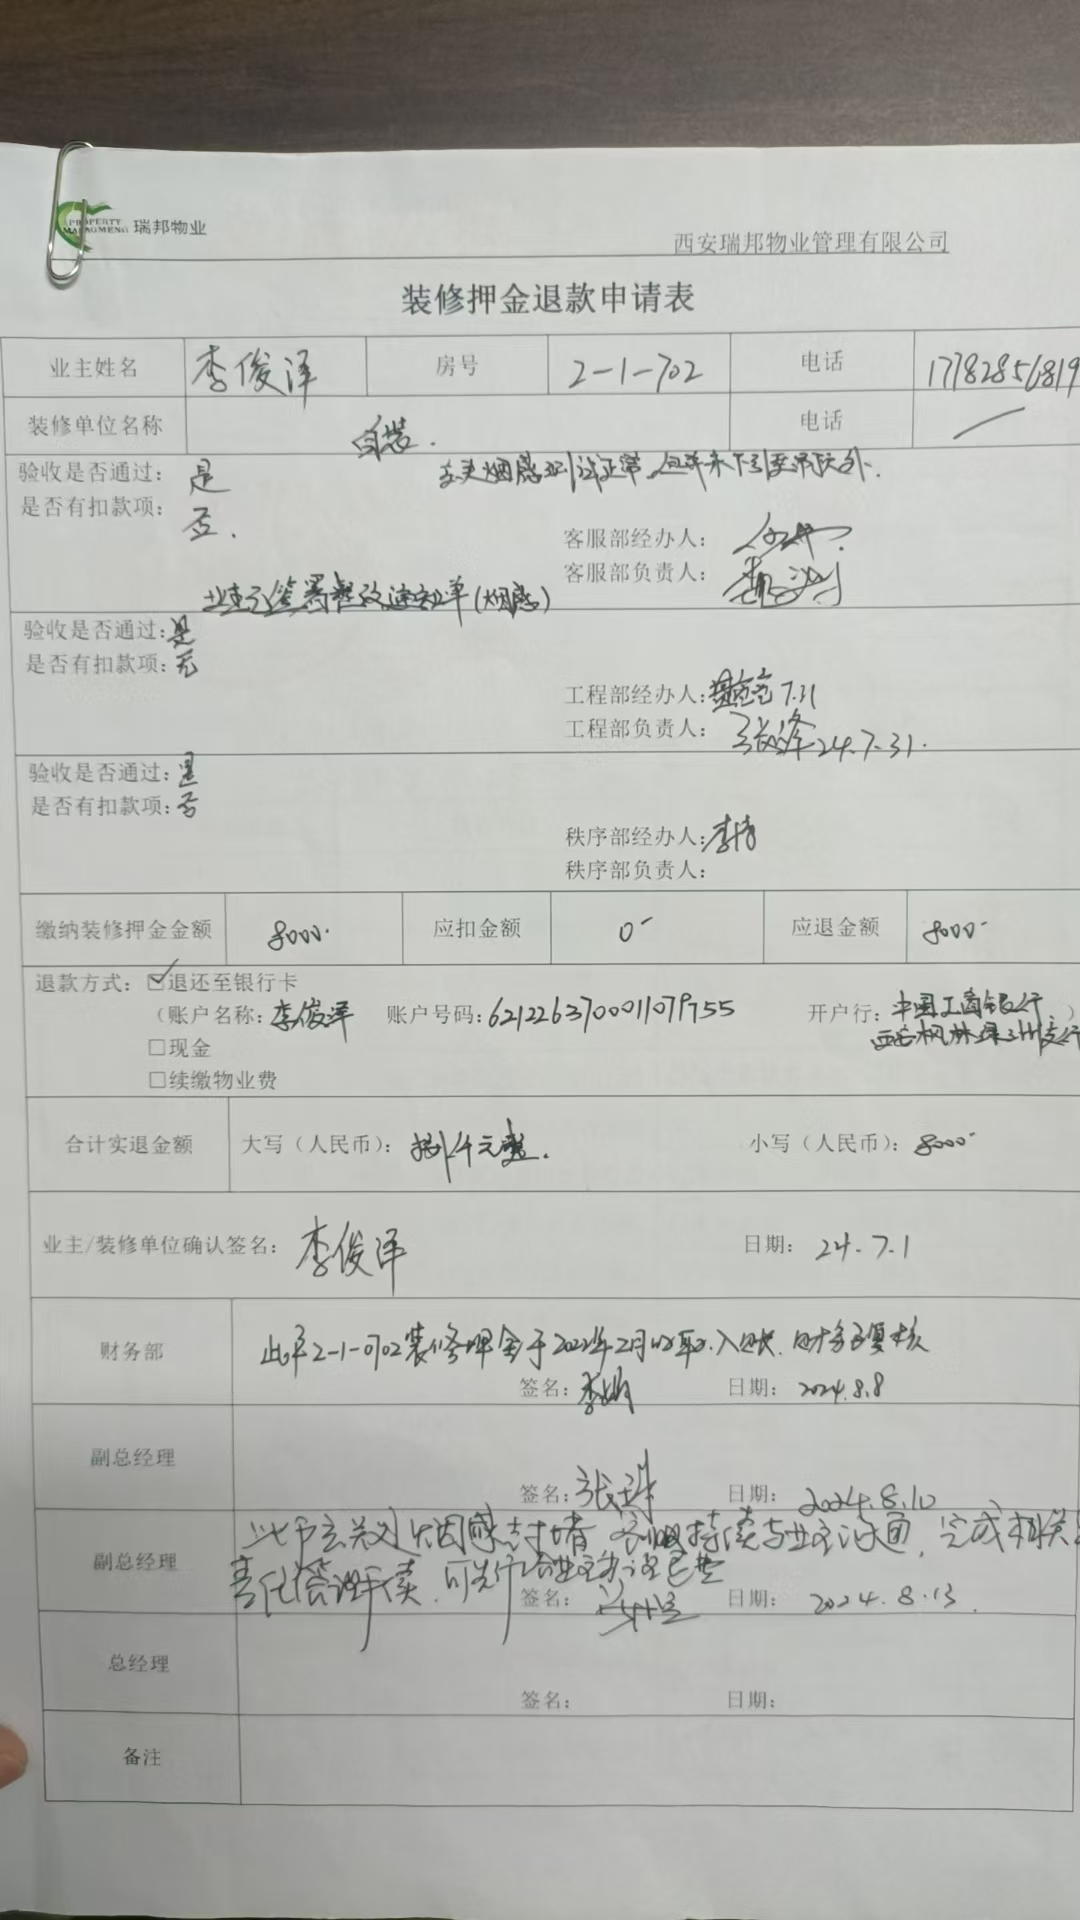 PROPERTY
MANAGMENT 瑞邦物业
西安瑞邦物业管理有限公司
装修押金退款申请表
业主姓名 李俊泽 房号 2-1-702 电话 17782856819
装修单位名称 自装. 电话 /
验收是否通过: 是
是否有扣款项: 否.
客服部经办人:
客服部负责人:
业主已签署整改通知单(烟感)
验收是否通过: 是
是否有扣款项: 无
工程部经办人: 7.31
工程部负责人: 24.7.31.
验收是否通过: 是
是否有扣款项: 否
秩序部经办人: 李倩
秩序部负责人:
缴纳装修押金金额 8000- 应扣金额 0- 应退金额 8000-
退款方式: ☑退还至银行卡
(账户名称: 李俊泽 账户号码: 6212263700011079755 开户行: 中国工商银行
西安枫林绿洲支行)
□现金
□续缴物业费
合计实退金额 大写(人民币): 捌仟元整. 小写(人民币): 8000-
业主/装修单位确认签名: 李俊泽 日期: 24.7.1
财务部 此户2-1-0702装修押金于2022年2月 入账. 财务已复核
签名: 李娟 日期: 2024.8.8
副总经理
签名: 日期: 2024.8.10
此户主关 烟感封堵 持续与业主沟通, 完成相关
副总经理 责任管理手续. 可先行给业主办理
签名: 日期: 2024.8.13
总经理
签名: 日期:
备注